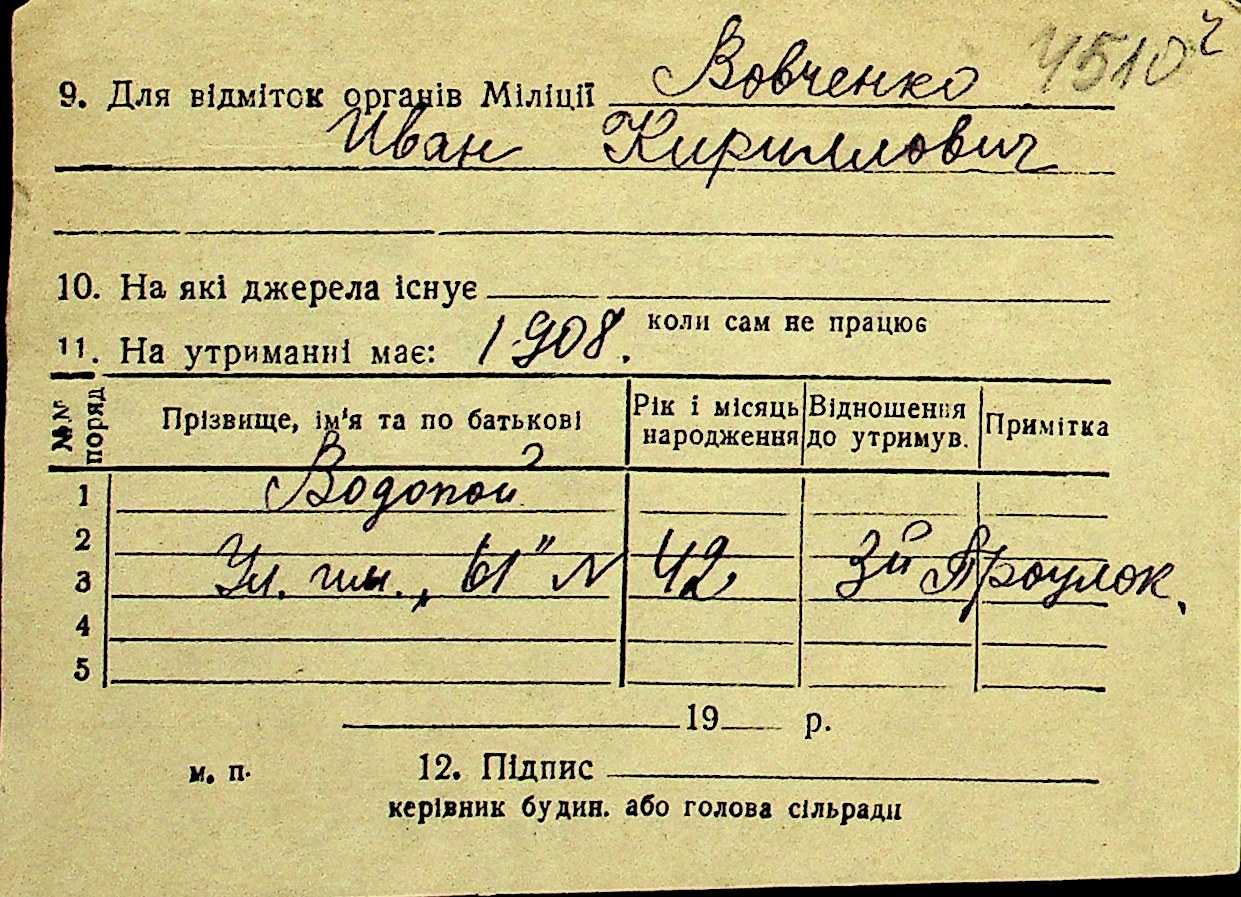 Вовченко 4510 2
9. Для відміток органів Міліції
Иван Кириллович
10. На які джерела існує
коли сам не працює
11. На утриманні має: 1908.
№№ поряд
Прізвище, ім'я та по батькові
Рік і місяць народження
Відношення до утримув.
Примітка
1 Водопой
2
3 Ул. им. „61" N 42, 3й Проулок,
4
5
19 р.
м. п. 12. Підпис
керівник будин. або голова сільради